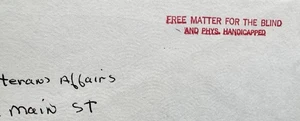 FREE MATTER FOR THE BLIND
AND PHYS. HANDICAPPED
terans Affairs
Main ST